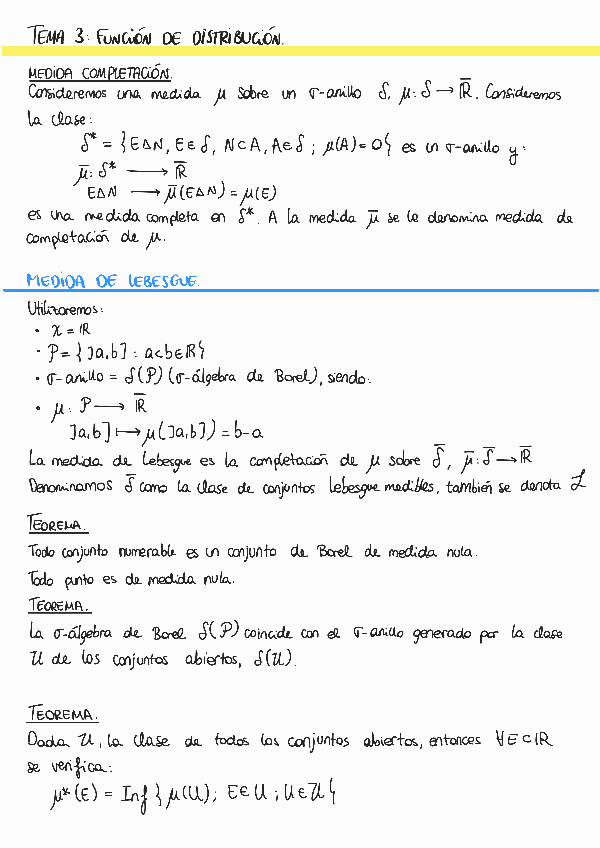 TEMA 3: FUNCIÓN DE DISTRIBUCIÓN.
MEDIDA COMPLETACIÓN.
Consideremos una medida μ sobre un σ-anillo S, μ: S → R̅. Consideremos
la clase:
S* = {E∆N, E∈S, N⊂A, A∈S ; μ(A)=0} es un σ-anillo y:
μ̅: S* → R̅
E∆N → μ̅(E∆N) = μ(E)
es una medida completa en S*. A la medida μ̅ se le denomina medida de
completación de μ.
MEDIDA DE LEBESGUE.
Utilizaremos:
• X = ℝ
• P = { ]a,b] : a<b∈ℝ}
• σ-anillo = S(P) (σ-álgebra de Borel), siendo:
• μ: P → R̅
]a,b] ↦ μ(]a,b]) = b-a
La medida de Lebesgue es la completación de μ sobre S̅, μ̅: S̅ → R̅
Denominamos S̅ como la clase de conjuntos Lebesgue medibles, también se denota L
TEOREMA.
Todo conjunto numerable es un conjunto de Borel de medida nula.
Todo punto es de medida nula.
TEOREMA.
La σ-álgebra de Borel S(P) coincide con el σ-anillo generado por la clase
U de los conjuntos abiertos, S(U).
TEOREMA.
Dada U, la clase de todos los conjuntos abiertos, entonces ∀E⊂ℝ
se verifica:
μ*(E) = Inf { μ(U); E∈U ; U∈U }